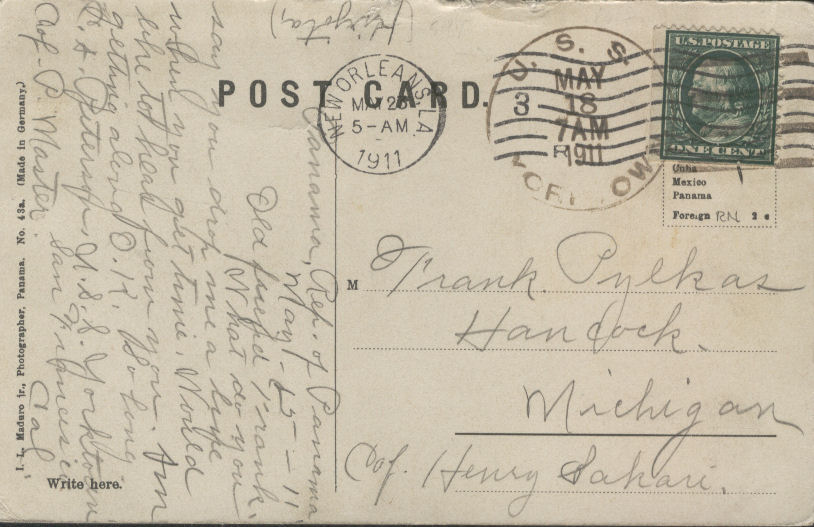 POST CARD.
U. S. S.
MAY
18
7AM
1911
YORKTOWN
NEW ORLEANS, LA.
MAY 26
5-AM
1911
U.S. POSTAGE
ONE CENT
Cuba
Mexico
Panama
Foreign RN 2c
M Frank Pylkas
Hancock.
Michigan
Cof. Henry Sakari.
Panama, Rep. of Panama
May 15 - 11
Old friend Frank.
What do you
say you drop me a line
when you get time. Would
like to hear from you. Am
getting along O.K. So long
H. A. Peterson, U.S.S. Yorktown
Cof - P. Master. San Francisco
Cal
Write here.
I. L. Maduro jr., Photographer, Panama. No. 43a. (Made in Germany.)